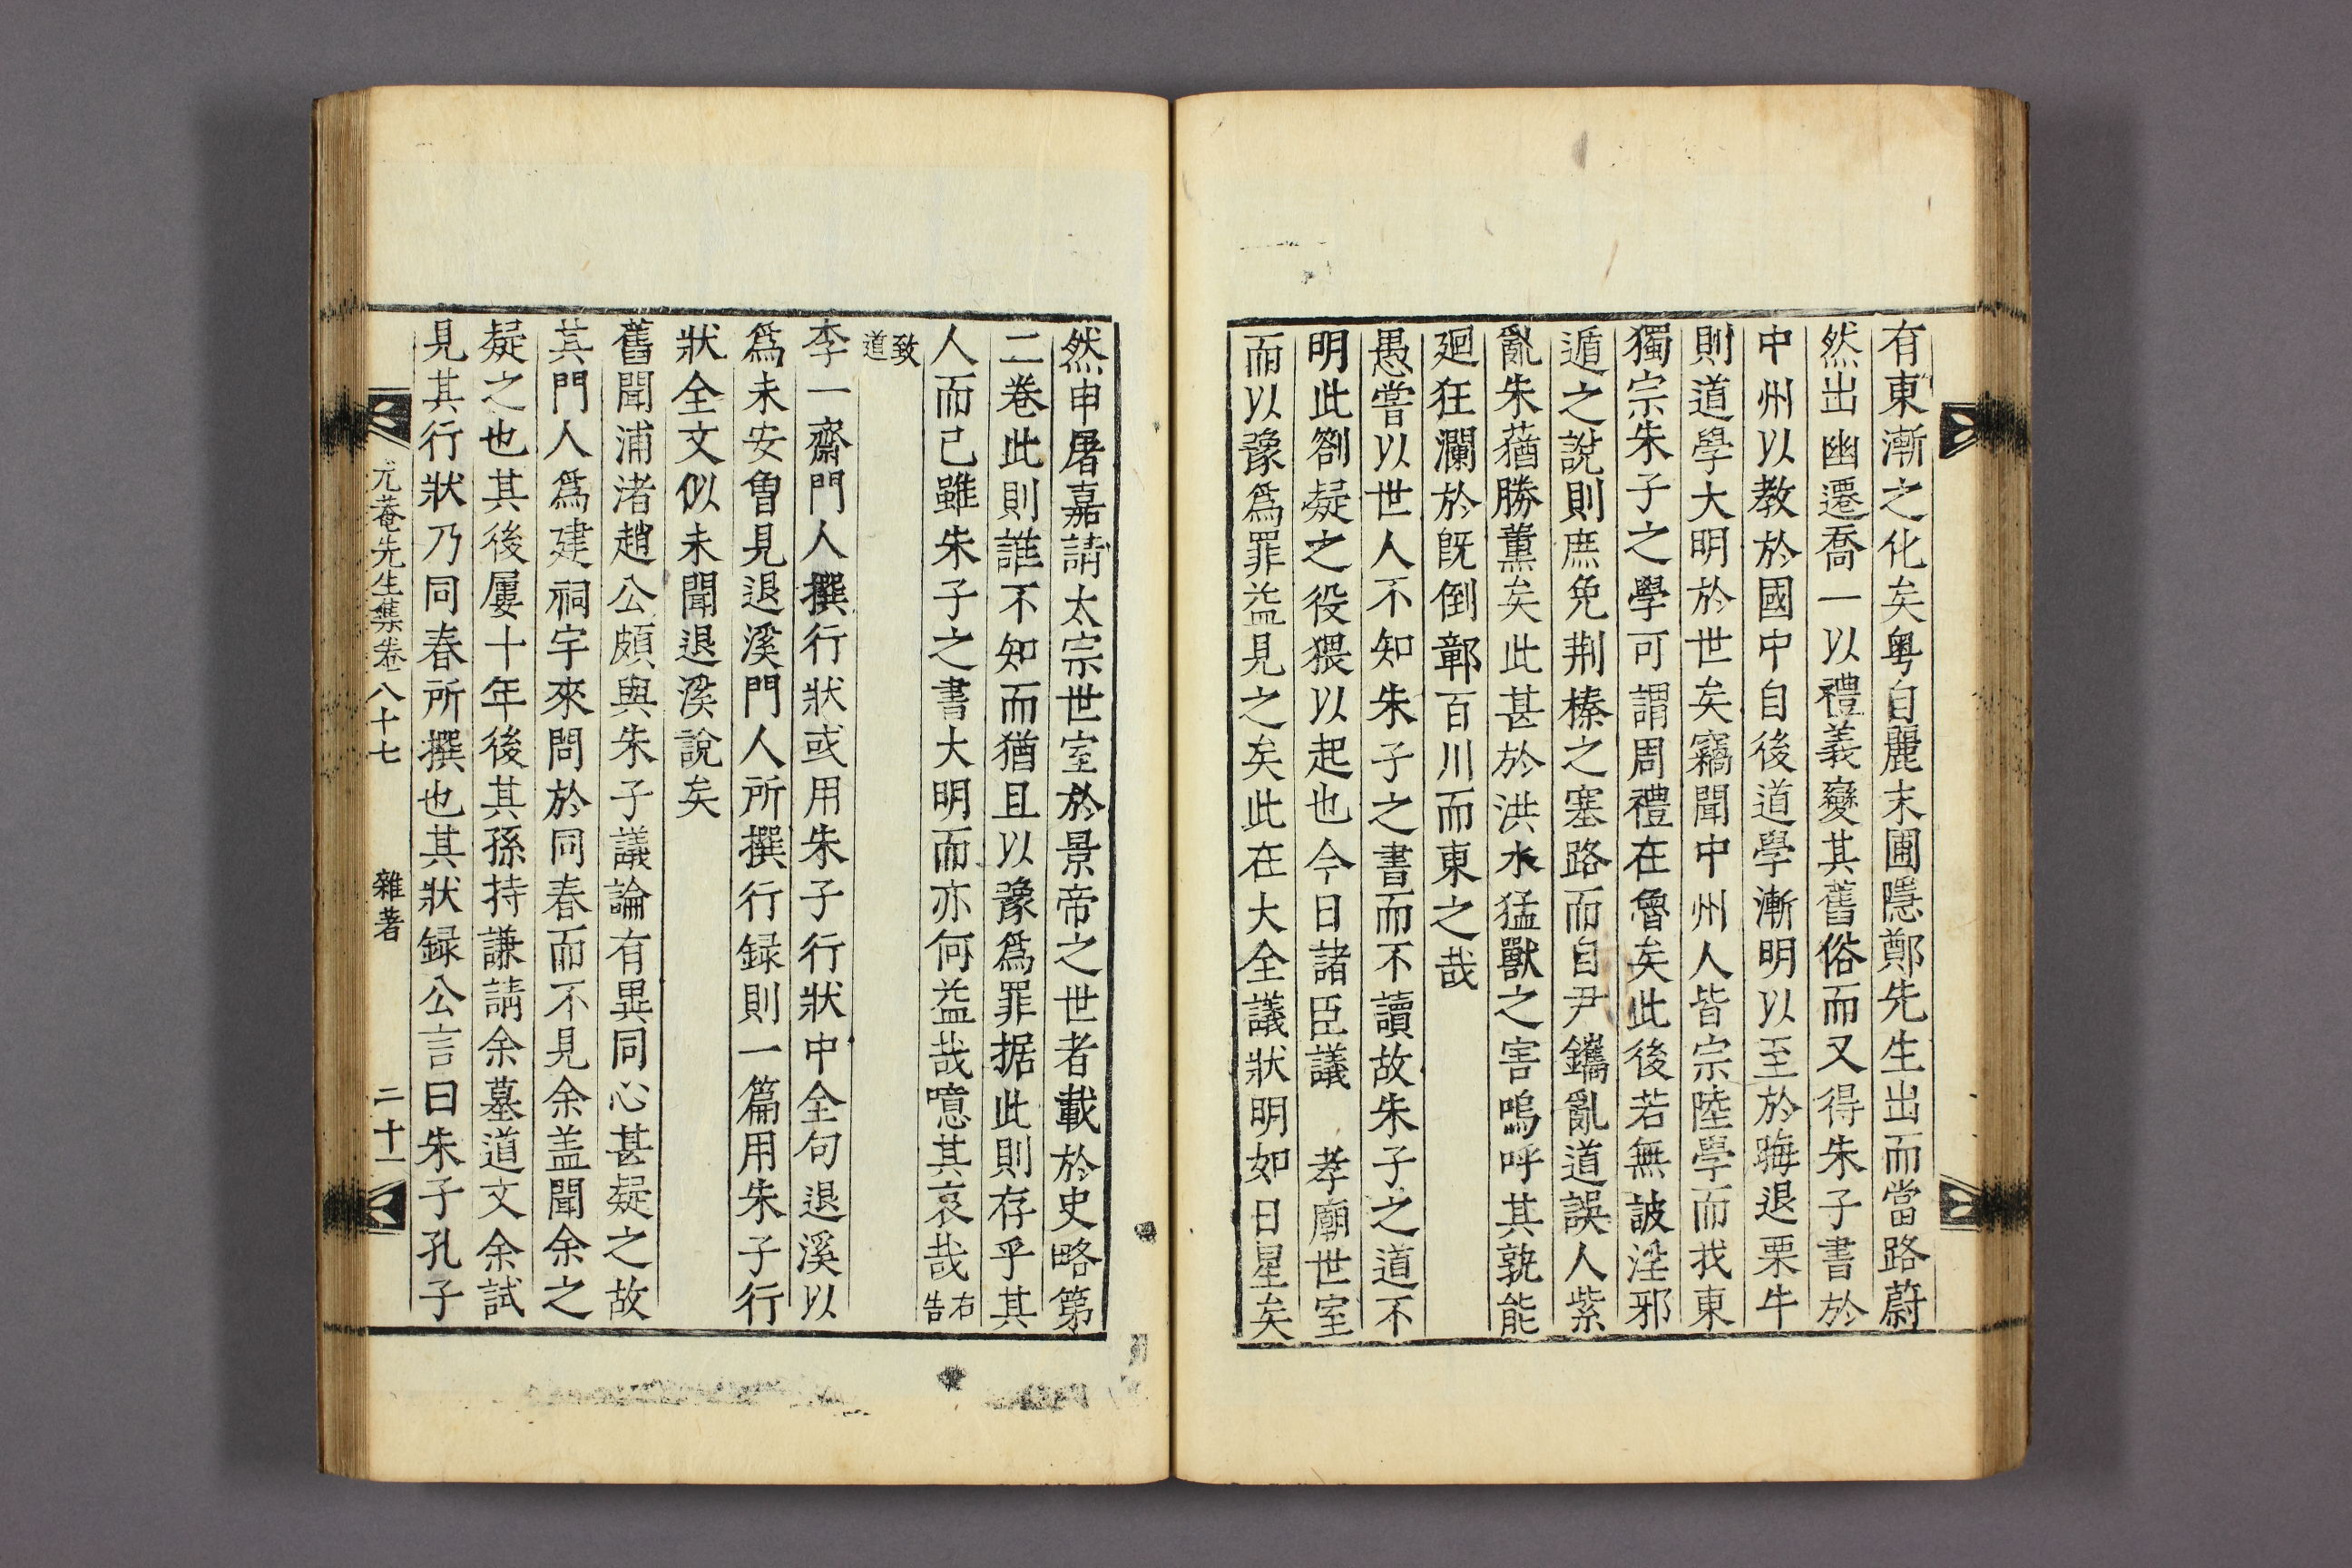 有東漸之化矣粤自麗末圃隱鄭先生出而當路蔚
然出幽遷喬一以禮義變其舊俗而又得朱子書於
中州以教於國中自後道學漸明以至於晦退栗牛
則道學大明於世矣竊聞中州人皆宗陸學而我東
獨宗朱子之學可謂周禮在魯矣此後若無詖淫邪
遁之說則庶免荆榛之塞路而自尹鑴亂道誤人紫
亂朱蕕勝薰矣此甚於洪水猛獸之害嗚呼其孰能
廻狂瀾於旣倒鄣百川而東之哉
愚嘗以世人不知朱子之書而不讀故朱子之道不
明此劄疑之役猥以起也今日諸臣議 孝廟世室
而以豫爲罪益見之矣此在大全議狀明如日星矣
然申屠嘉請太宗世室於景帝之世者載於史略第
二卷此則誰不知而猶且以豫爲罪据此則存乎其
人而已雖朱子之書大明而亦何益哉噫其哀哉右告
致道
李一齋門人撰行狀或用朱子行狀中全句退溪以
爲未安曾見退溪門人所撰行録則一篇用朱子行
狀全文似未聞退溪說矣
舊聞浦渚趙公頗與朱子議論有異同心甚疑之故
其門人爲建祠宇來問於同春而不見余盖聞余之
疑之也其後屢十年後其孫持謙請余墓道文余試
見其行狀乃同春所撰也其狀録公言曰朱子孔子
尤菴先生集卷八十七 雜著 二十一